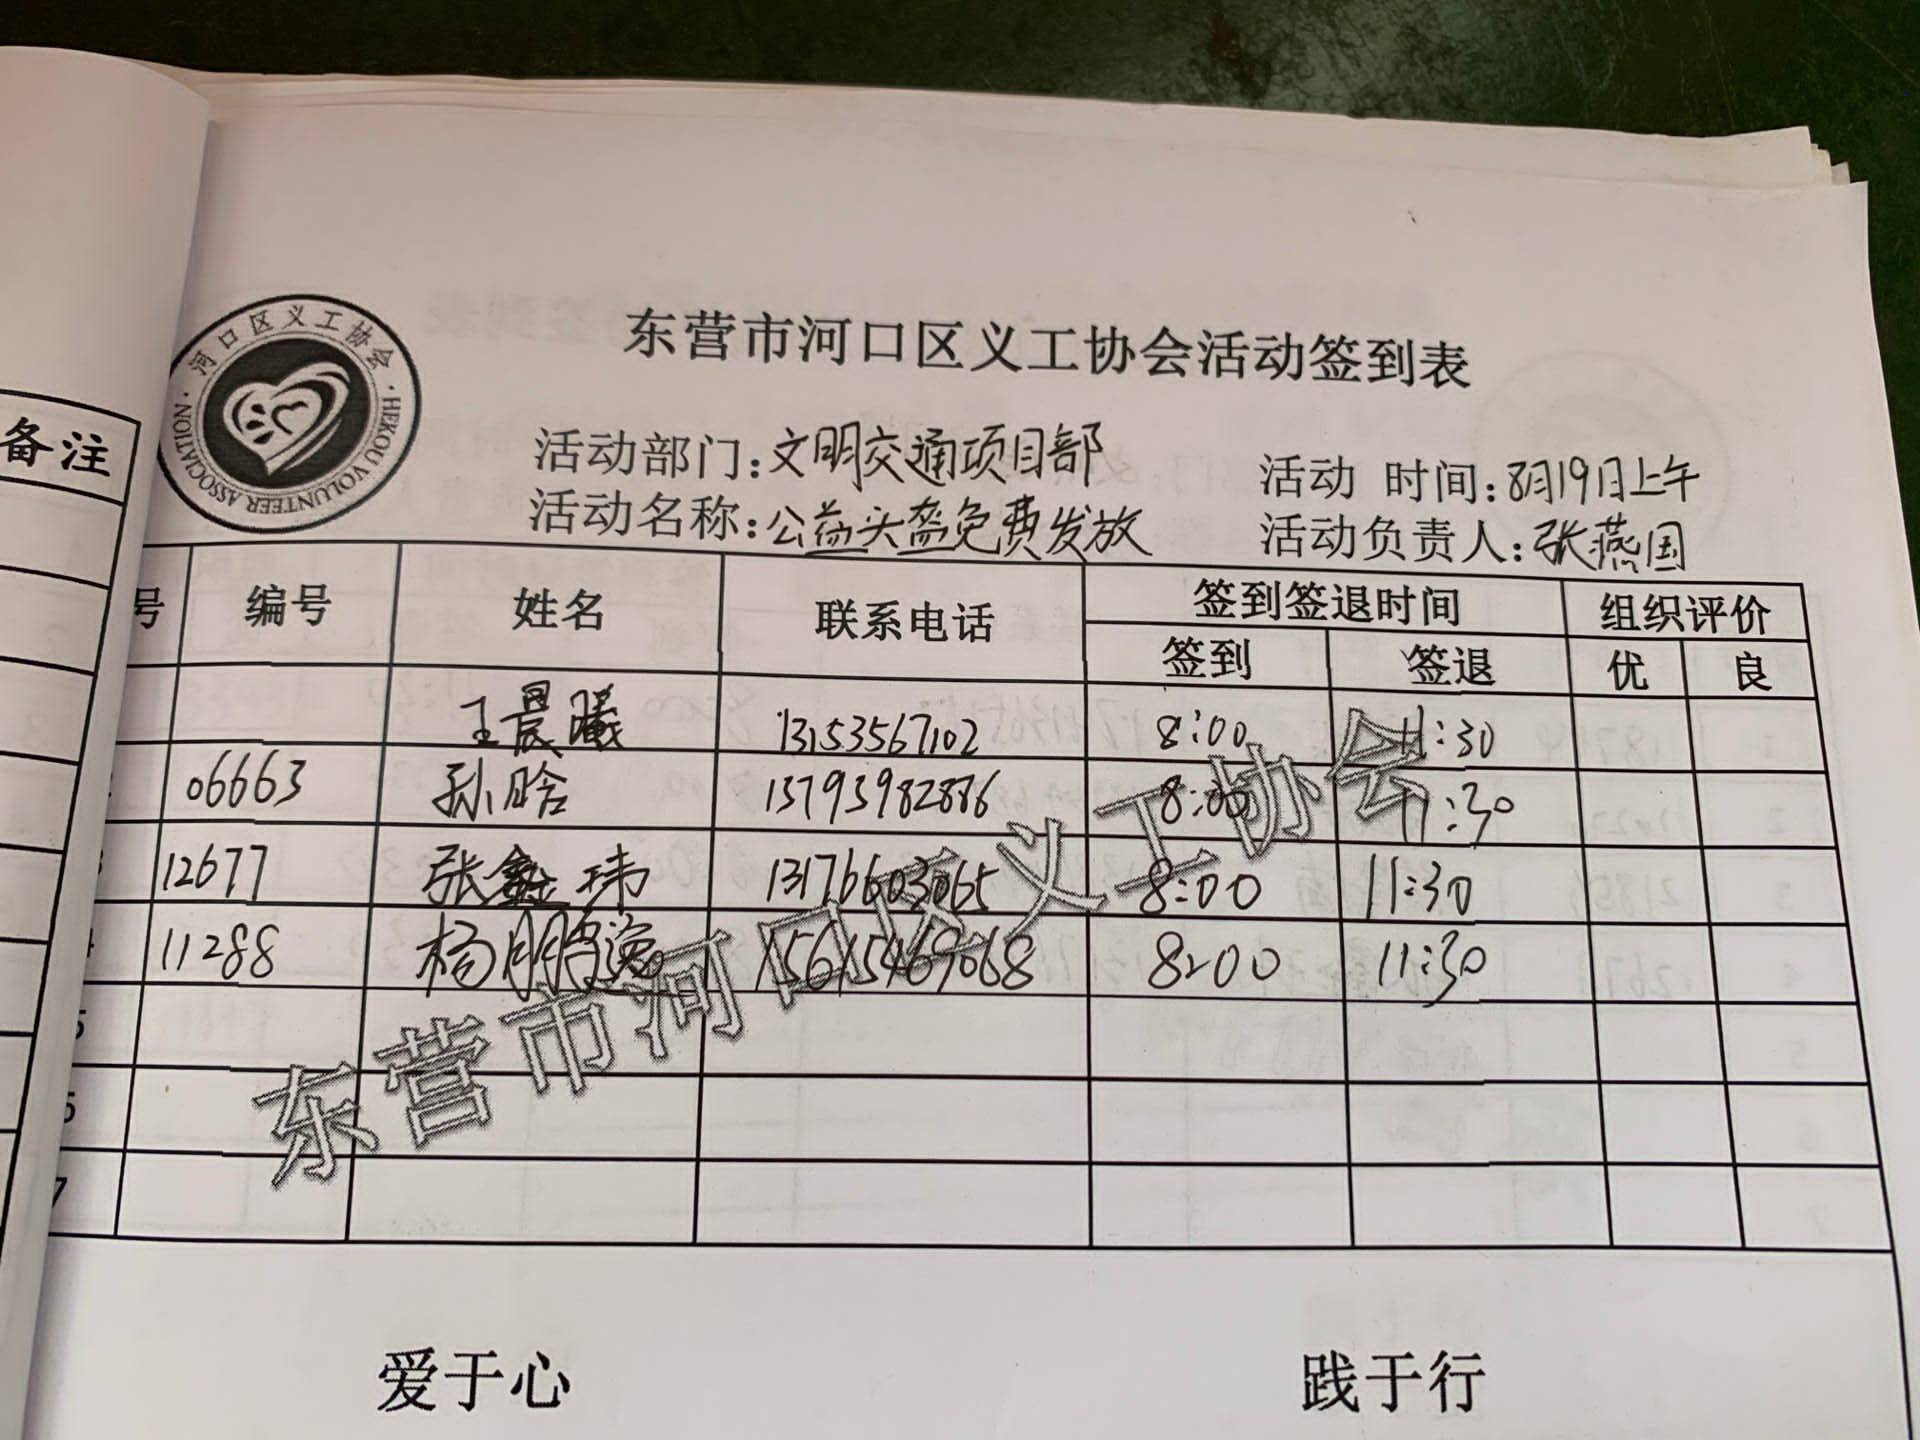 备注
河口区义工协会
HEKOU VOLUNTEER ASSOCIATION
东营市河口区义工协会活动签到表
活动部门:文明交通项目部 活动 时间:8月19日上午
活动名称:公益头盔免费发放 活动负责人:张燕国
号 编号 姓名 联系电话 签到签退时间 组织评价
签到 签退 优 良
王晨曦 13153567102 8:00 11:30
06663 孙晗 13793982886 8:00 11:30
3 12677 张鑫玮 13176603065 8:00 11:30
4 11288 杨鹏逸 15615469068 8:00 11:30
5
6
7
东营市河口区义工协会
爱于心 践于行